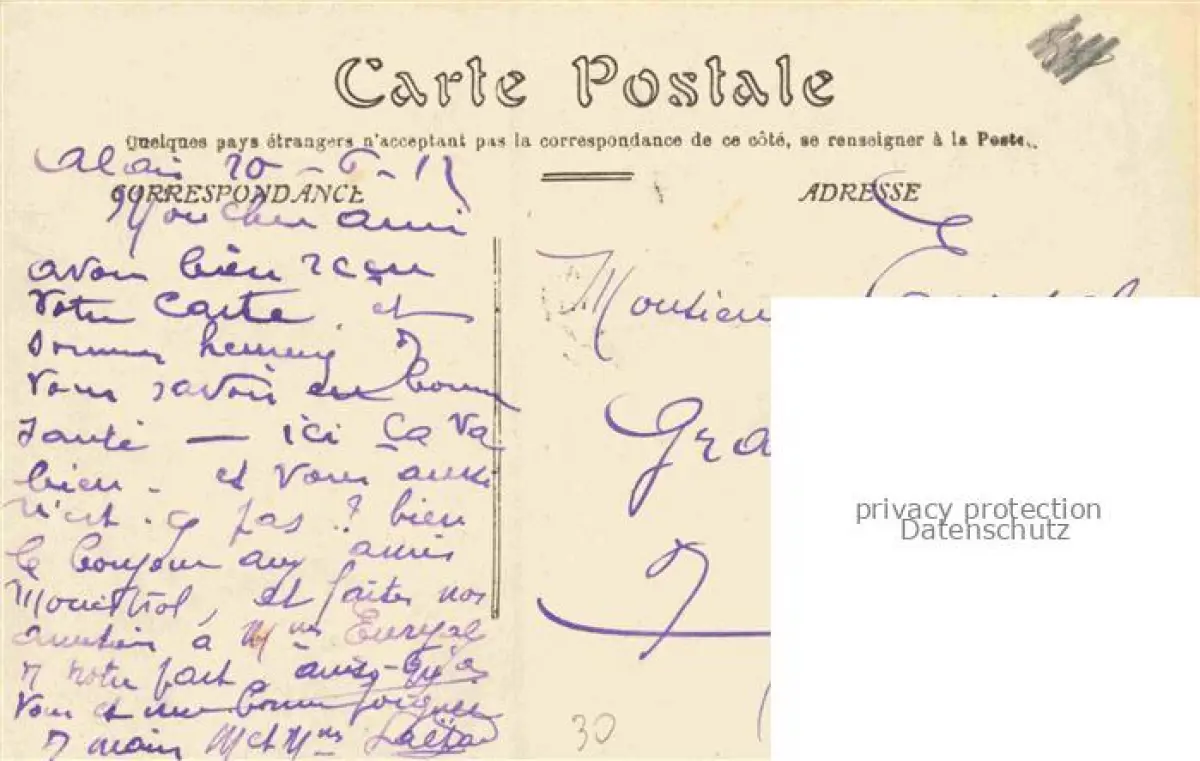 Carte Postale
Quelques pays étrangers n'acceptant pas la correspondance de ce côté, se renseigner à la Poste.
Alais 20 - 6 - 12
CORRESPONDANCE
Mon cher ami
avons bien reçu
Votre carte et
sommes heureux de
Vous savoir en bonne
santé — ici ça va
bien - et Vous aussi
n'est-ce pas ? bien
le bonjour aux amis
et faites nos
amitiés à Mme Euryale
de notre part ainsi qu'à
Vous et une bonne poignée
de main M et Mme
ADRESSE
Monsieur
Gra
30
privacy protection
Datenschutz